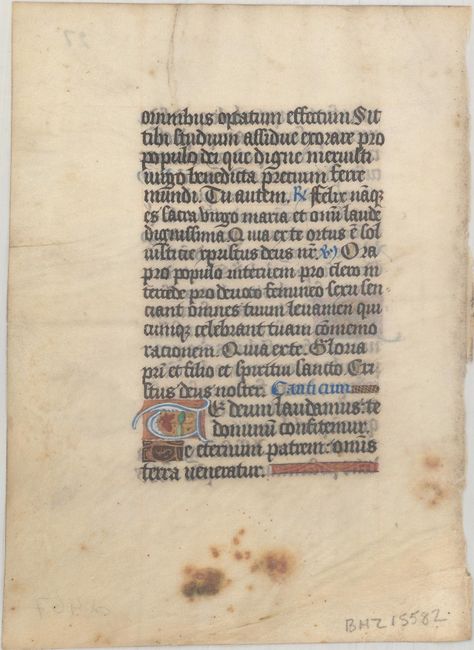 omnibus optatum effectum. Sit
tibi studium assidue exorare pro
populo dei que digne meruisti
uirgo benedicta precium ferre
mundi. Tu autem. R̷ Felix nãq;
es sacra uirgo maria et omi laude
dignissima. Quia ex te ortus ẽ sol
iusticie xpristus deus nr̃. v̷ Ora
pro populo interueni pro clero in
tercede pro deuoto femineo sexu sen
ciant omnes tuum leuamen qui
cumq; celebrant tuam cõmemo
racionem. Quia ex te. Gloria
pri et filio et spiritui sancto. Cri
stus deus noster. Canticum
TE deum laudamus: te
dominum confitemur.
Te eternum patrem: omnis
terra ueneratur.
BHZ15582